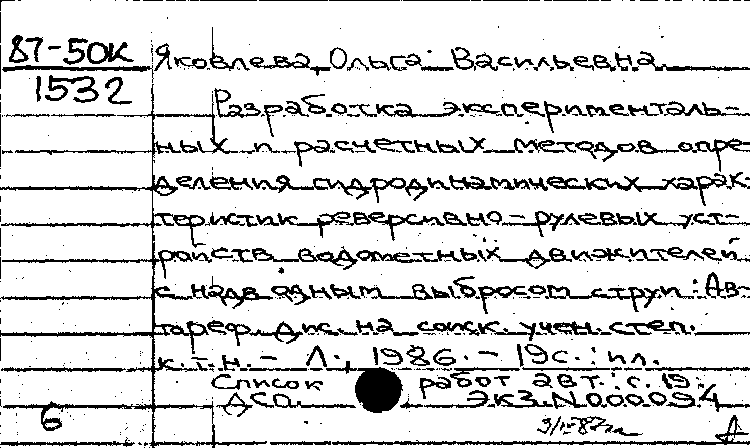 87-50К
1532
Яковлева, Ольга Васильевна.
Разработка эксперименталь-
ных и расчетных методов опре-
деления гидродинамических харак-
теристик реверсивно-рулевых уст-
ройств водометных движителей
с надводным выбросом струи: Ав-
тореф. дис. на соиск. учен. степ.
к.т.н. - Л., 1986. - 19с.: ил.
Список работ авт.: с. 19.
ДСП. Экз. N000094
6 Д